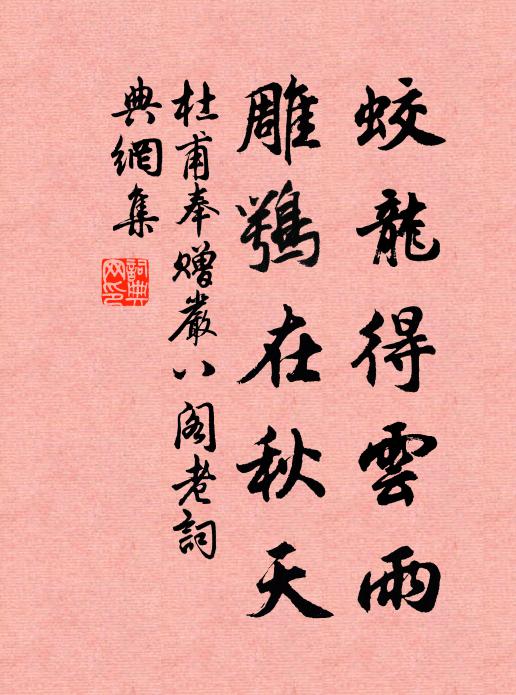 蛟龍得雲雨
雕鶚在秋天
杜甫奉贈嚴八閣老詞
典網集
詞典網印